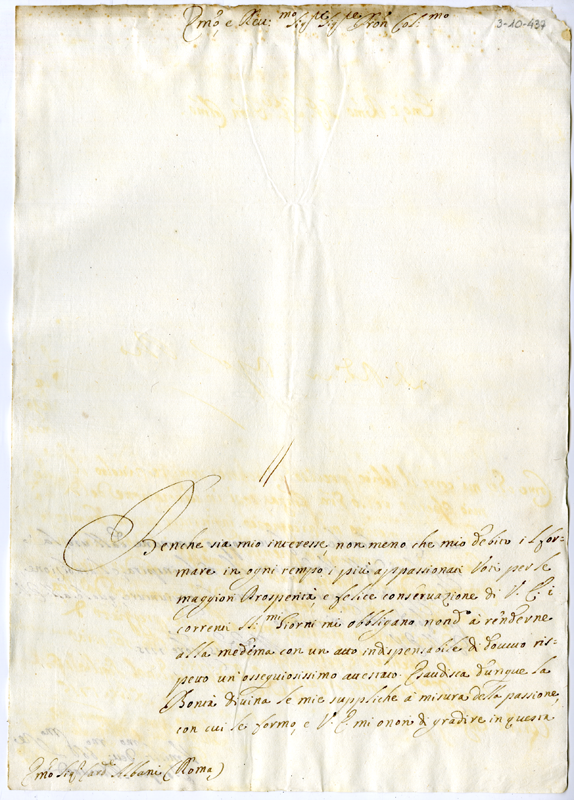 Em̃o, e Rev:mo Sig.re Sig.re Pron Col:mo
3-10-437
Benche sia mio interesse non meno che mio debito il for-
mare in ogni tempo i più appassionati Voti per le
maggiori Prosperità, e felice conservazione di V. E. i
correnti SS.mi Giorni mi obbligano nond.o à renderne
alla medema con un atto indispensabile di dovuto ris-
petto un'ossequiosissimo attestato. Esaudisca dunque la
Bontà divina le mie suppliche à misura della passione,
con cui le formo, e V. E. mi onori di gradire in questa
Em̃o Sig.r Card. Albani (Roma)